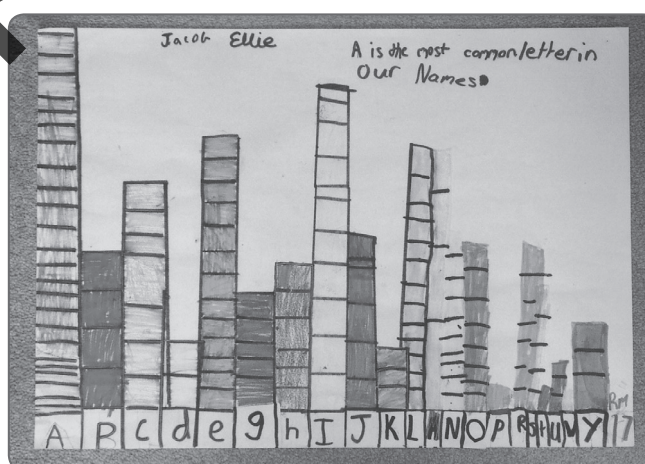 Jacob Ellie
A is the most common letter in
Our Names.
A B C d e g h I J K L M N O P R S t U M Y 17
Rm